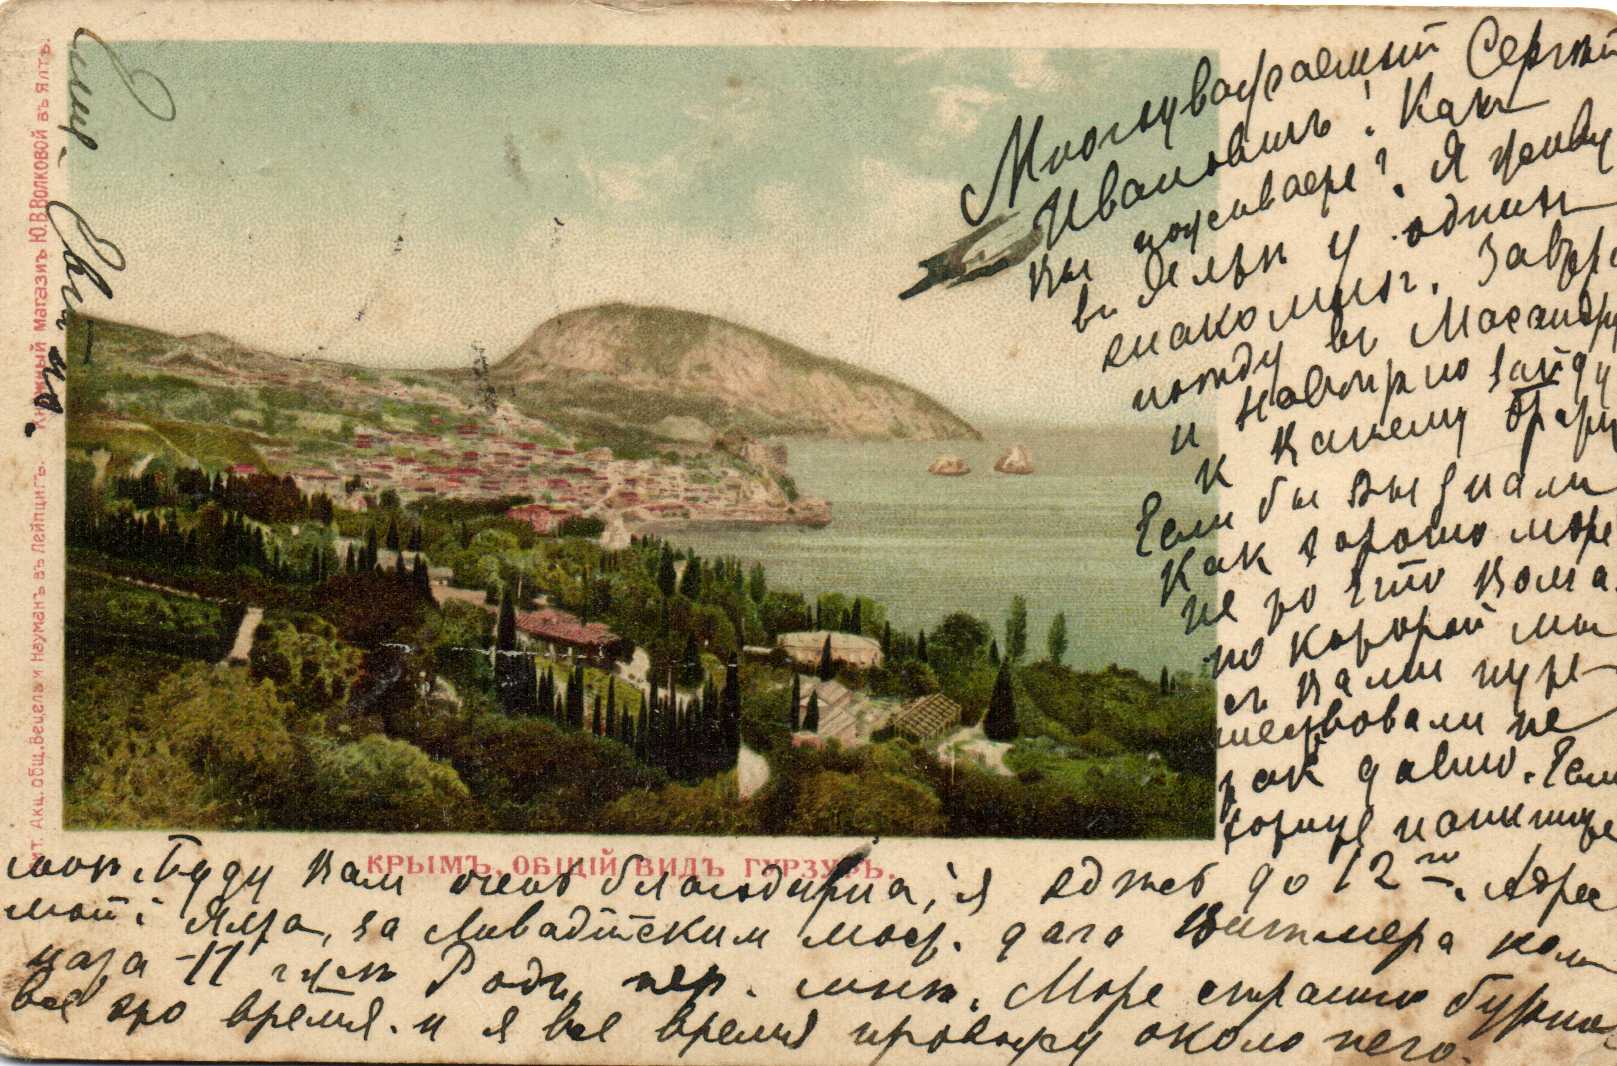 Многоуважаемый Сергѣй
Ивановичъ! Какъ
Вы поживаете? Я живу
въ Ялтѣ у однихъ
знакомыхъ. Завтра
поѣду въ Массандру
и навѣрно зайду
к Вашему брату
Если бы Вы знали
как хорошо море
не то что Волга
по которой мы
съ Вами путе-
шествовали не
так давно. Если
хотите напишите
мнѣ. Буду Вам очень благодарна, я здѣсь до 12го. Адрес
мой: Ялта, за Ливадійским мост. дача Витмера ком
ната 11
Море страшно бурно
все это время. и я все время провожу около него.
КРЫМЪ. ОБЩІЙ ВИДЪ ГУРЗУФЪ.
Книжный магазинъ Ю.В.Волковой въ Ялтѣ.
Акц. Общ. Вецель и Науманъ въ Лейпцигѣ.